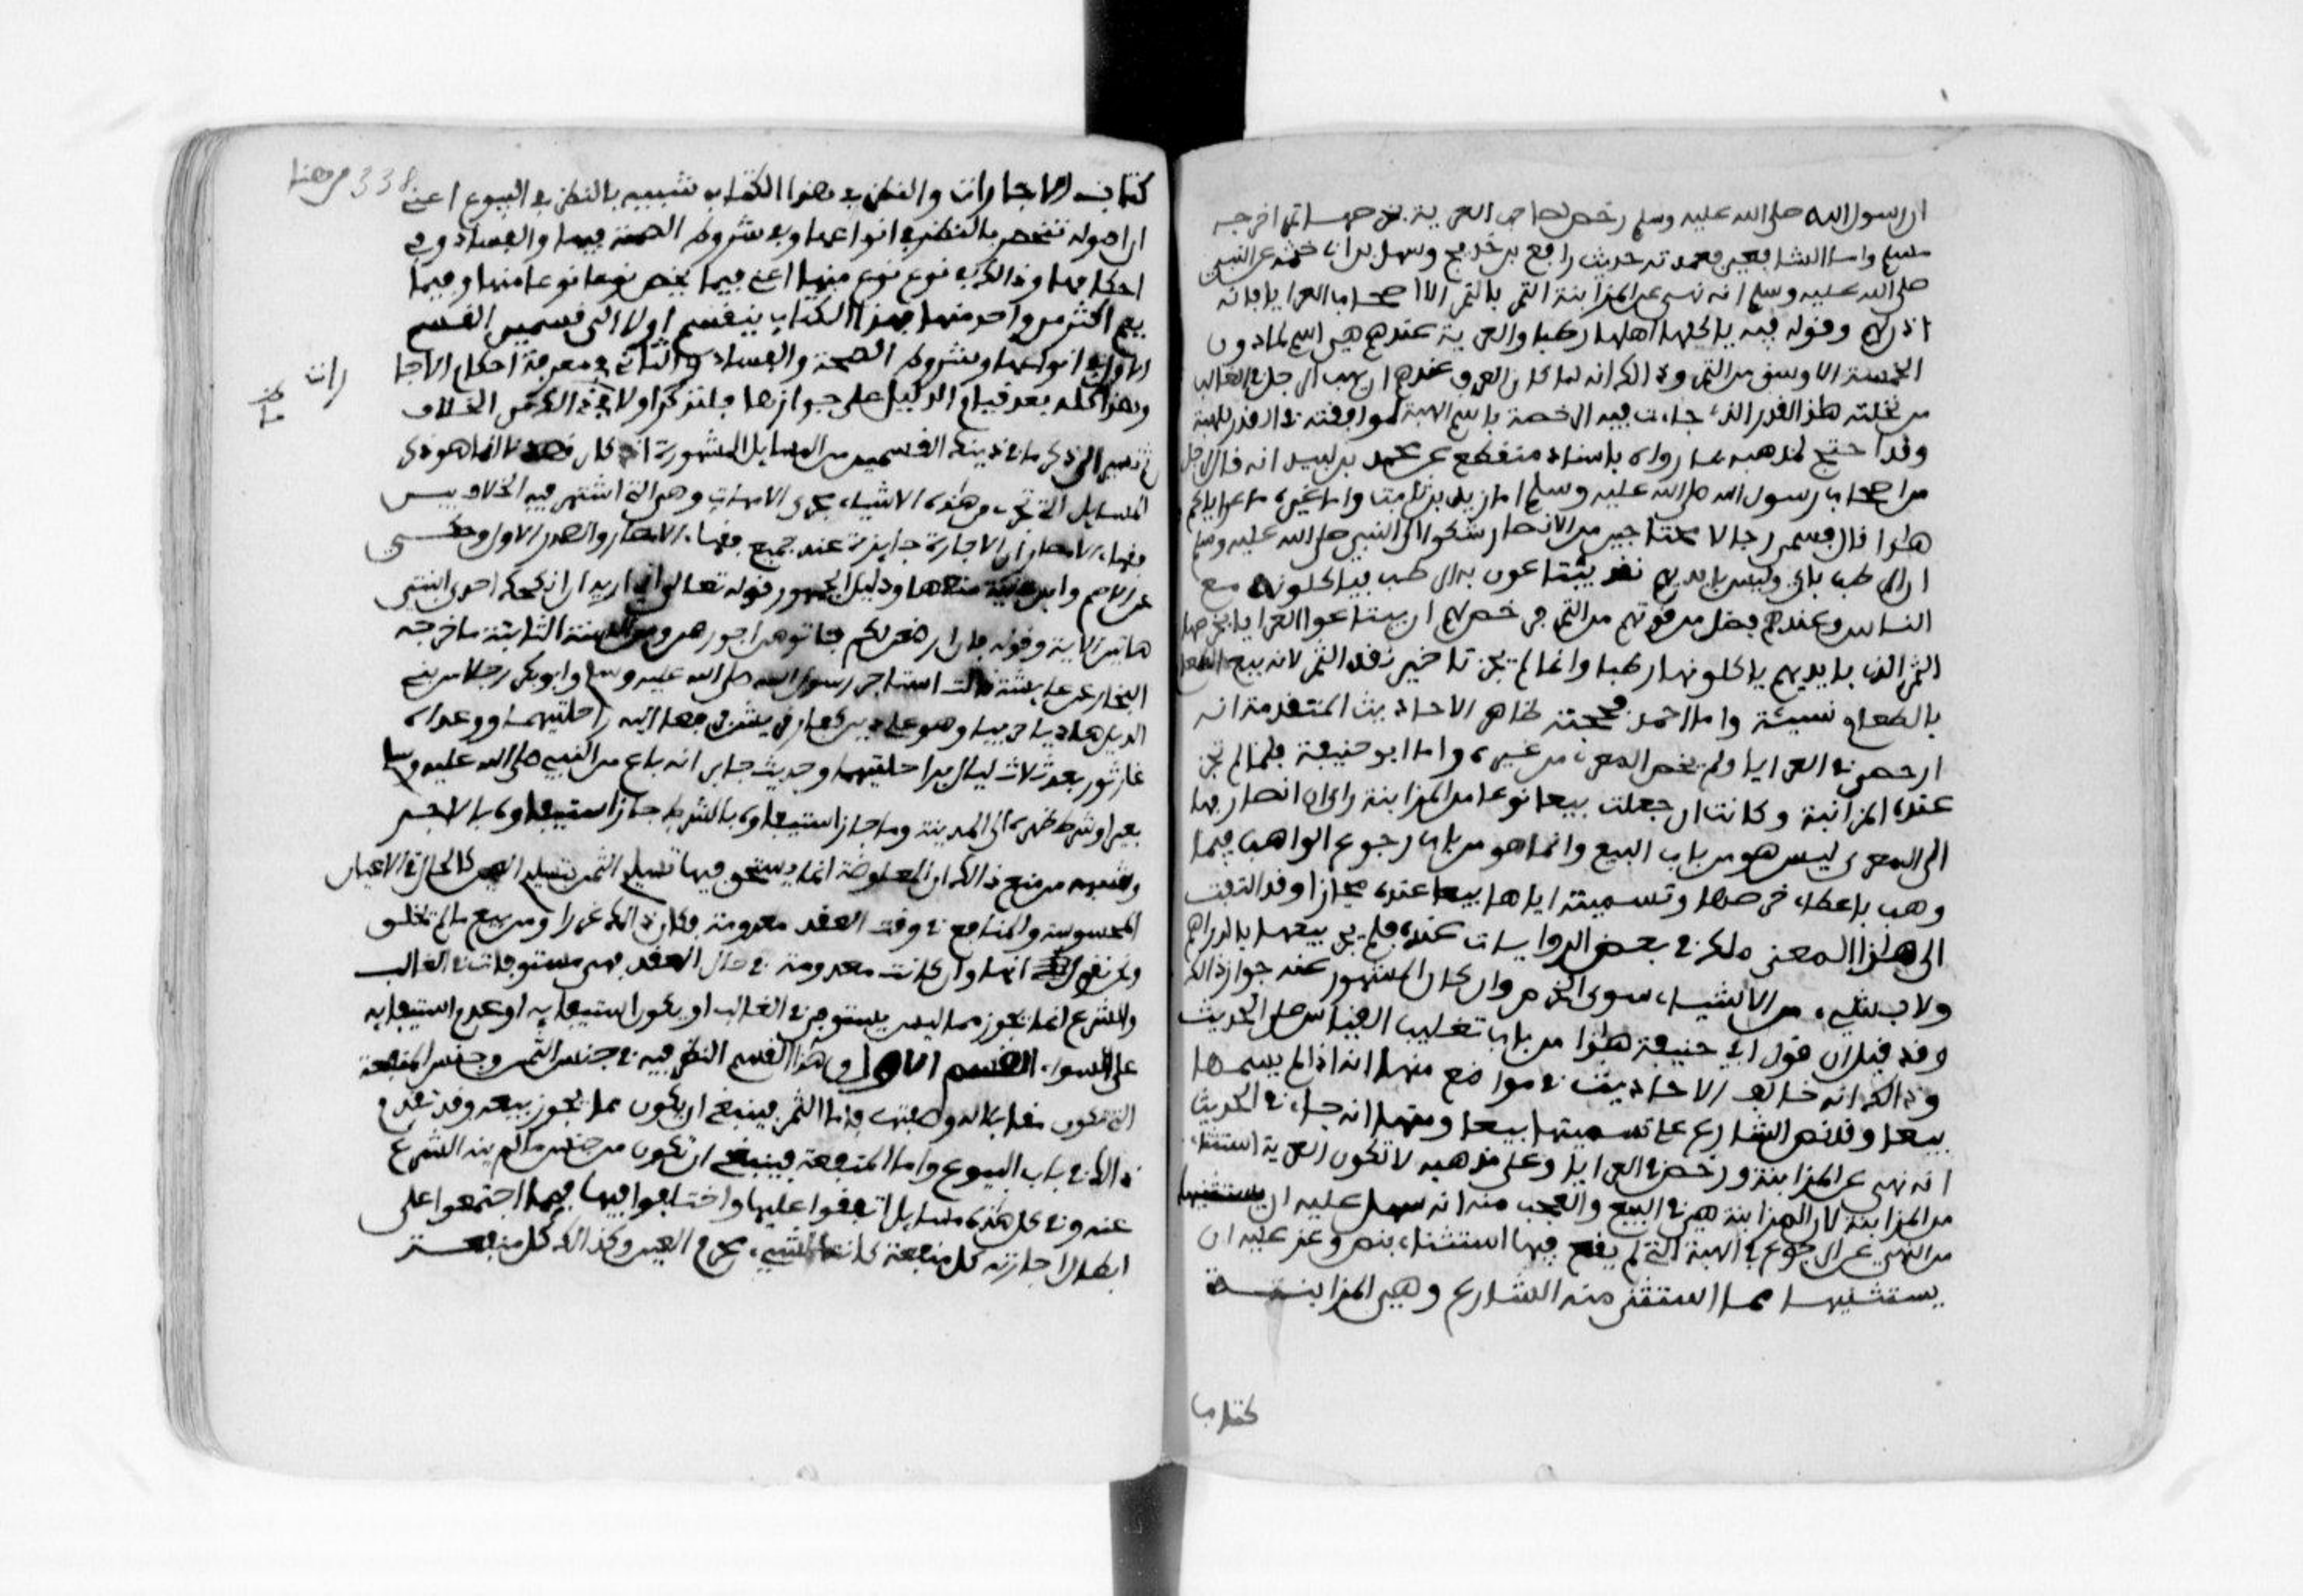 ان رسول الله صلى الله عليه وسلم رخص لصاحب العرية بخرصها تمرا خرجه
مسلم واما الشافعي فعمدته حديث رافع بن خديج وسهل بن ابي حثمة عن النبي
صلى الله عليه وسلم انه نهى عن المزابنة التمر بالتمر الا اصحاب العرايا فانه
اذن لهم وقوله فيه ياكلها اهلها رطبا والعرية عندهم هي اسم لما دون
الخمسة الاوسق من التمر وذالك انه لما كان العرف عندهم ان يهب الرجل في الغالب
من نخلته هذا القدر الذي جاءت فيه الرخصة باسم الهبة لموافقته في القدر للهبة
وقد احتج لمذهبه بما رواه باسناد منقطع عن محمود بن لبيد انه قال لرجل
من اصحاب رسول الله صلى الله عليه وسلم اما زيد بن ثابت واما غيره ما عراياكم
هذا قال فسمى رجالا محتاجين من الانصار شكوا الى النبي صلى الله عليه وسلم
ان الرطب باتي وليس بايديهم نقد يبتاعون به الرطب فياكلونه مع
الناس وعندهم فضل من قوتهم من التمر فرخص لهم ان يبتاعوا العرايا بخرصها
التمر الذي بايديهم ياكلونها رطبا وانما لم يجز تاخير نقد التمر لانه بيع الطعام
بالطعام نسيئة واما احمد فحجته ظاهر الاحاديث المتقدمة انه
ارخص في العرايا ولم يخص المعرى من غيره واما ابو حنيفة فلما لم تجز
عنده المزابنة وكانت ان جعلت بيعا نوعا من المزابنة راى ان انصرافها
الى المعرى ليس هو من باب البيع وانما هو من باب رجوع الواهب فيما
وهب باعطاء خرصها وتسميته اياها بيعا عنده مجازا وقد التفت
الى هذا المعنى ملك في بعض الروايات عنده فلم يجز بيعها بالدراهم
ولا بشيء من الاشياء سوى الخرص وان كان المشهور عنه جواز ذالك
وقد قيل ان قول ابي حنيفة هذا من باب تغليب القياس على الحديث
وذالك انه خالف الاحاديث في مواضع منها انه اذا لم يسمها
بيعا وقد نص الشارع على تسميتها بيعا ومنها انه جاء في الحديث
انه نهى عن المزابنة ورخص في العرايا وعلى مذهبه لا تكون العرية استثناء
من المزابنة لان المزابنة هي في البيع والعجب منه انه سهل عليه ان يستثنيها
من النهي عن الرجوع في الهبة التي لم يقع فيها استثناء بنص وعز عليه ان
يستثنيها مما استثنى منه الشارع وهي المزابنة
كتاب
338 من هنا
كتاب الاجارات والنظر في هذا الكتاب شبيه بالنظر في البيوع اعني
ان اصوله تنحصر بالنظر في انواعها وفي شروط الصحة فيها والفساد وفي
احكامها وذالك في نوع نوع منها اعني فيما يخص نوعا نوعا منها وفيما
يعم اكثر من واحد منها فهذا الكتاب ينقسم اولا الى قسمين القسم
الاول في انواعها وشروط الصحة والفساد والثاني في معرفة احكام الاجا
رات
وهذا كله بعد قيام الدليل على جوازها فلنذكر اولا ما في ذالك من الخلاف
ثم نصير الى ذكر ما في ذينك القسمين من المسايل المشهورة اذ كان قصدنا انما هو ذكر
المسايل التي تجرى من هذه الاشياء مجرى الامهات وهي التي اشتهر فيها الخلاف بين
فقهاء الامصار ان الاجارة جايزة عند جميع فقهاء الامصار والصدر الاول وحكي
عن الاصم وابن علية منعها ودليل الجمهور قوله تعالى اني اريد ان انكحك احدى ابنتي
هاتين الاية وقوله فان ارضعن لكم فاتوهن اجورهن ومن السنة الثابتة ما خرجه
البخاري عن عايشة قالت استاجر رسول الله صلى الله عليه وسلم وابو بكر رجلا من بني
الديل هاديا خريتا وهو على دين كفار قريش فدفعا اليه راحلتيهما ووعداه
غار ثور بعد ثلاث ليال براحلتيهما وحديث جابر انه باع من النبي صلى الله عليه وسلم
بعيرا وشرط ظهره الى المدينة وما جاز استيفاوه بالشرط جاز استيفاوه بالاجر
وشبهة من منع ذالك ان المعاوضة انما يستحق فيها تسليم الثمن بتسليم العين كالحال في الاعيان
المحسوسة والمنافع في وقت العقد معدومة فكان ذالك غررا ومن بيع ما لم يخلق
ونحن نقول انها وان كانت معدومة في حال العقد فهي مستوفات في الغالب
والشرع انما يجوز مما ليس يستوفى في الغالب او يكون استيفايه او عدم استيفايه
على السواء القسم الاول وهذا القسم النظر فيه في جنس الثمن وجنس المنفعة
التي تكون مقابلا له وصفتها فاما الثمن فينبغي ان يكون مما يجوز بيعه وقد تقدم
ذالك في باب البيوع واما المنفعة فينبغي ان تكون من جنس ما لم ينه الشرع
عنه وفي كل هذه مسايل اتفقوا عليها واختلفوا فيها فمما اجتمعوا على
ابطال اجارته كل منفعة كانت لشيء محرم العين وكذالك كل منفعة